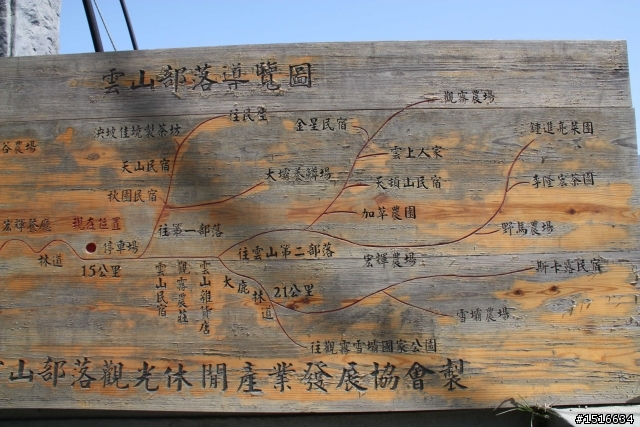 雲山部落導覽圖
觀霧農場
往民生
金星民宿
泱坡佳境製茶坊
鍾進亮菜園
谷農場
雲上人家
天山民宿
大壩養鱒場
天境山民宿
李隆宏茶園
秋園民宿
加草農園
宏輝養廳
現在位置
往第一部落
野馬農場
停車場
往雲山第二部落
林道
宏輝農場
15公里
雲山民宿
觀霧農莊
雲山雜貨店
大鹿林道
21公里
斯卡落民宿
雪壩農場
往觀霧雪壩國家公園
山部落觀光休閒產業發展協會製
#1516634